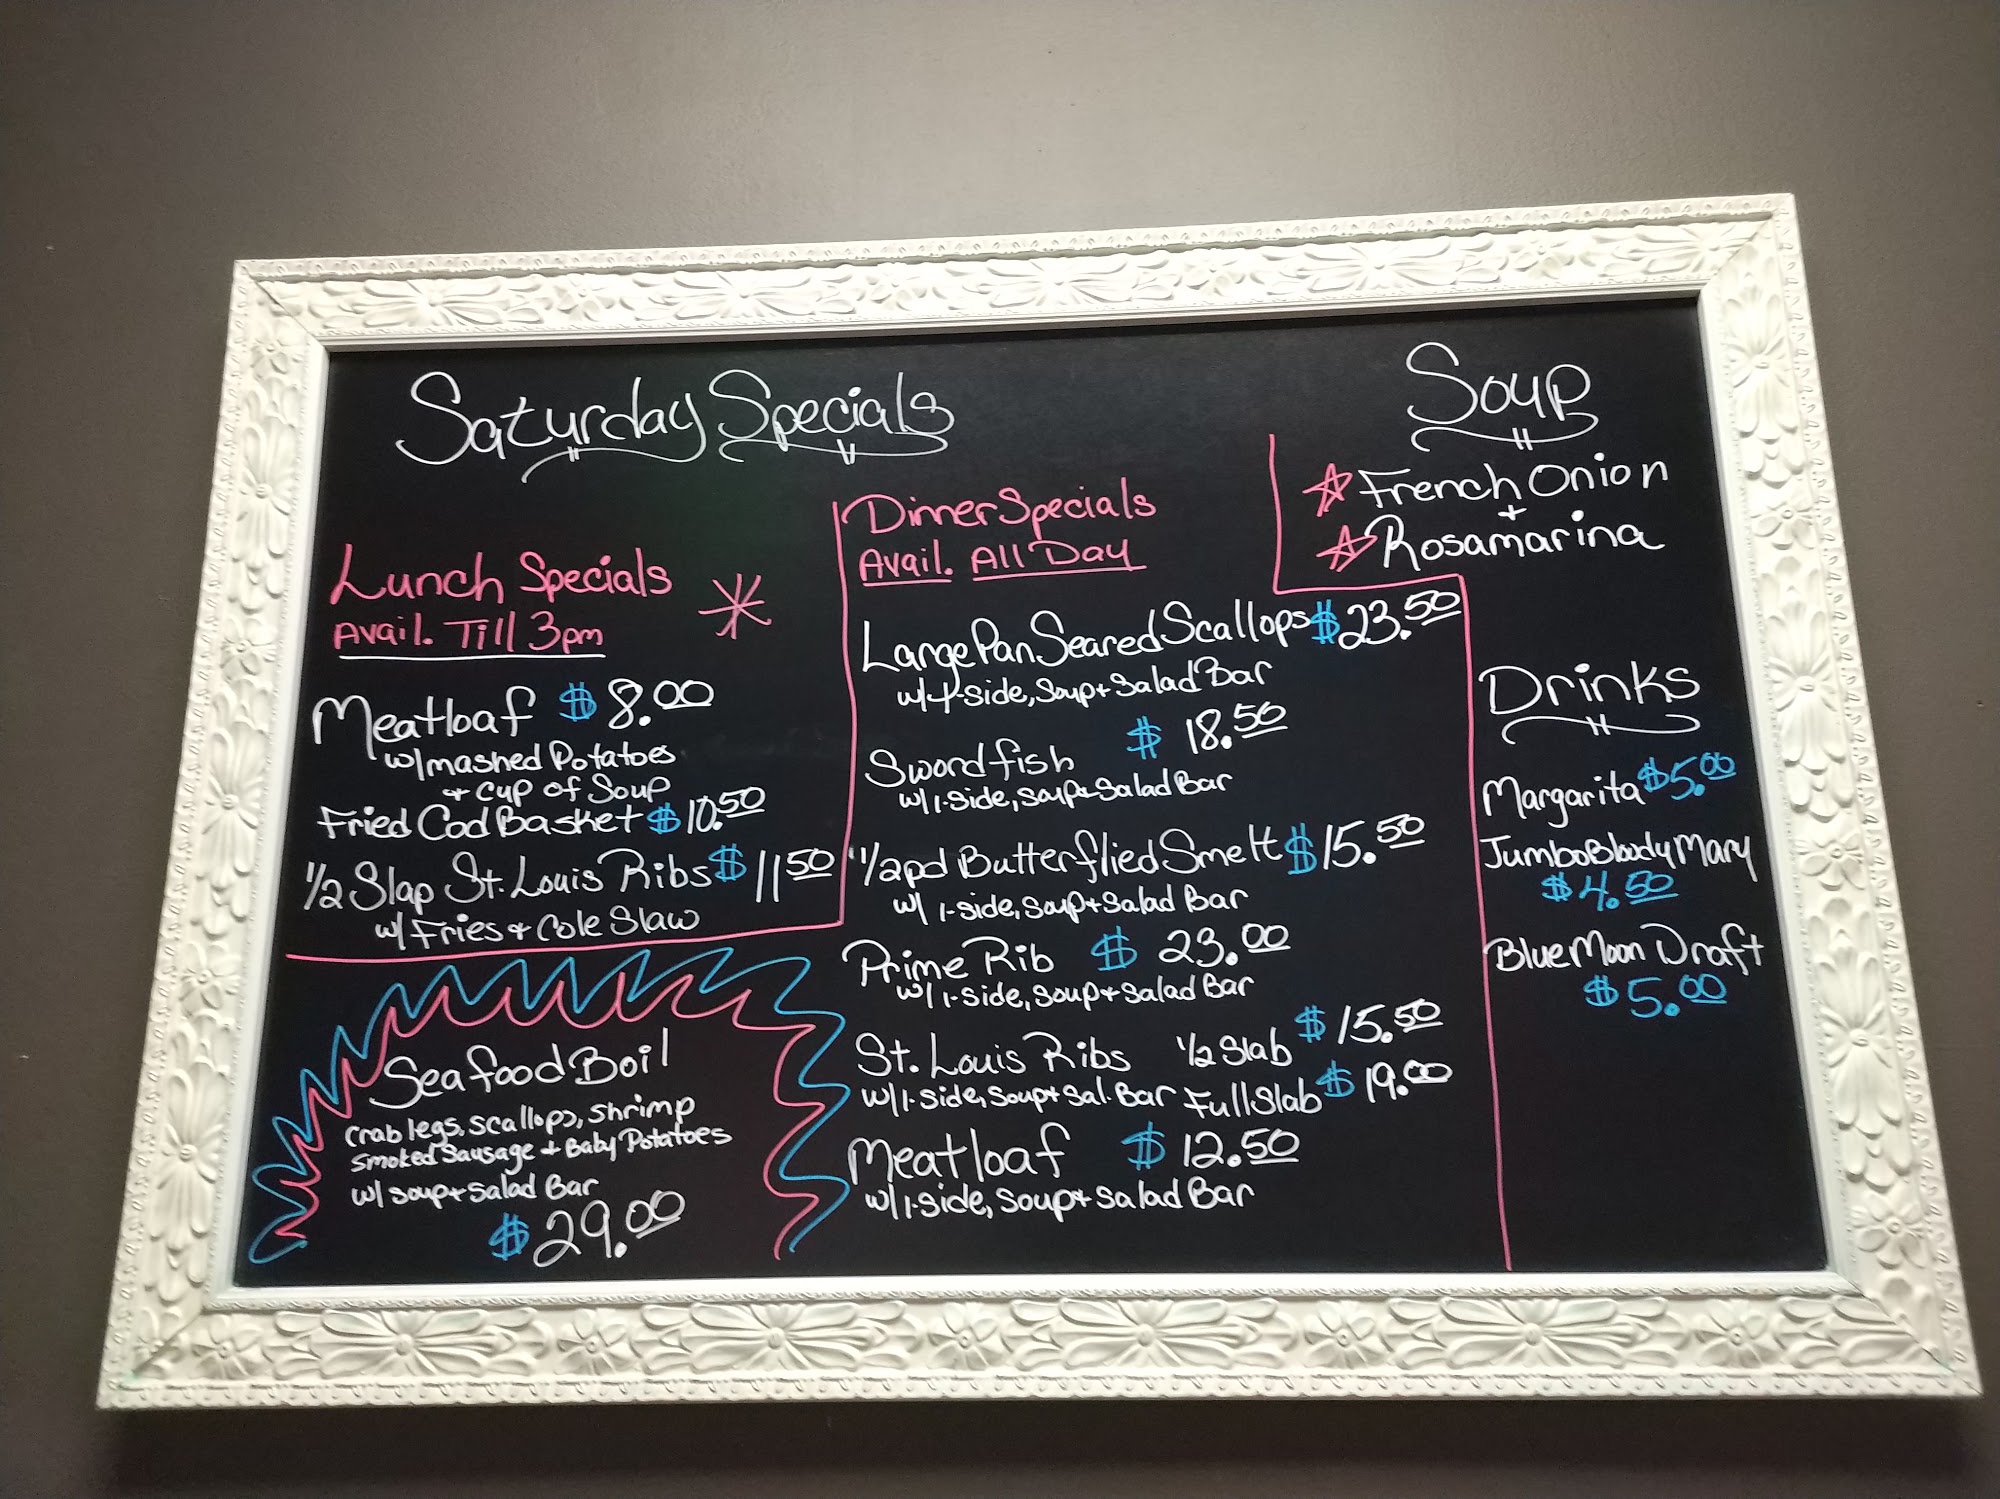 Saturday Specials
Lunch Specials
Avail. Till 3pm
Meatloaf $8.00
w/mashed Potatoes
+ cup of Soup
Fried Cod Basket $10.50
1/2 Slap St. Louis Ribs $11 50
w/ Fries + Cole Slaw
Seafood Boil
Crab legs, scallops, shrimp
Smoked Sausage + Baby Potatoes
w/ soup + Salad Bar
$29.00
Dinner Specials
Avail. All Day
Large Pan Seared Scallops $23.50
w/ 1-side, Soup + Salad Bar
Swordfish $18.50
w/ 1-side, Soup + Salad Bar
1/2 pd Butterflied Smelt $15.50
w/ 1-side, Soup + Salad Bar
Prime Rib $23.00
w/ 1-side, Soup + Salad Bar
St. Louis Ribs 1/2 Slab $15.50
w/ 1-side, Soup + Sal. Bar Full Slab $19.00
Meatloaf $12.50
w/ 1-side, Soup + Salad Bar
Soup
French Onion
+
Rosamarina
Drinks
Margarita $5.00
Jumbo Bloody Mary
$4.50
Blue Moon Draft
$5.00